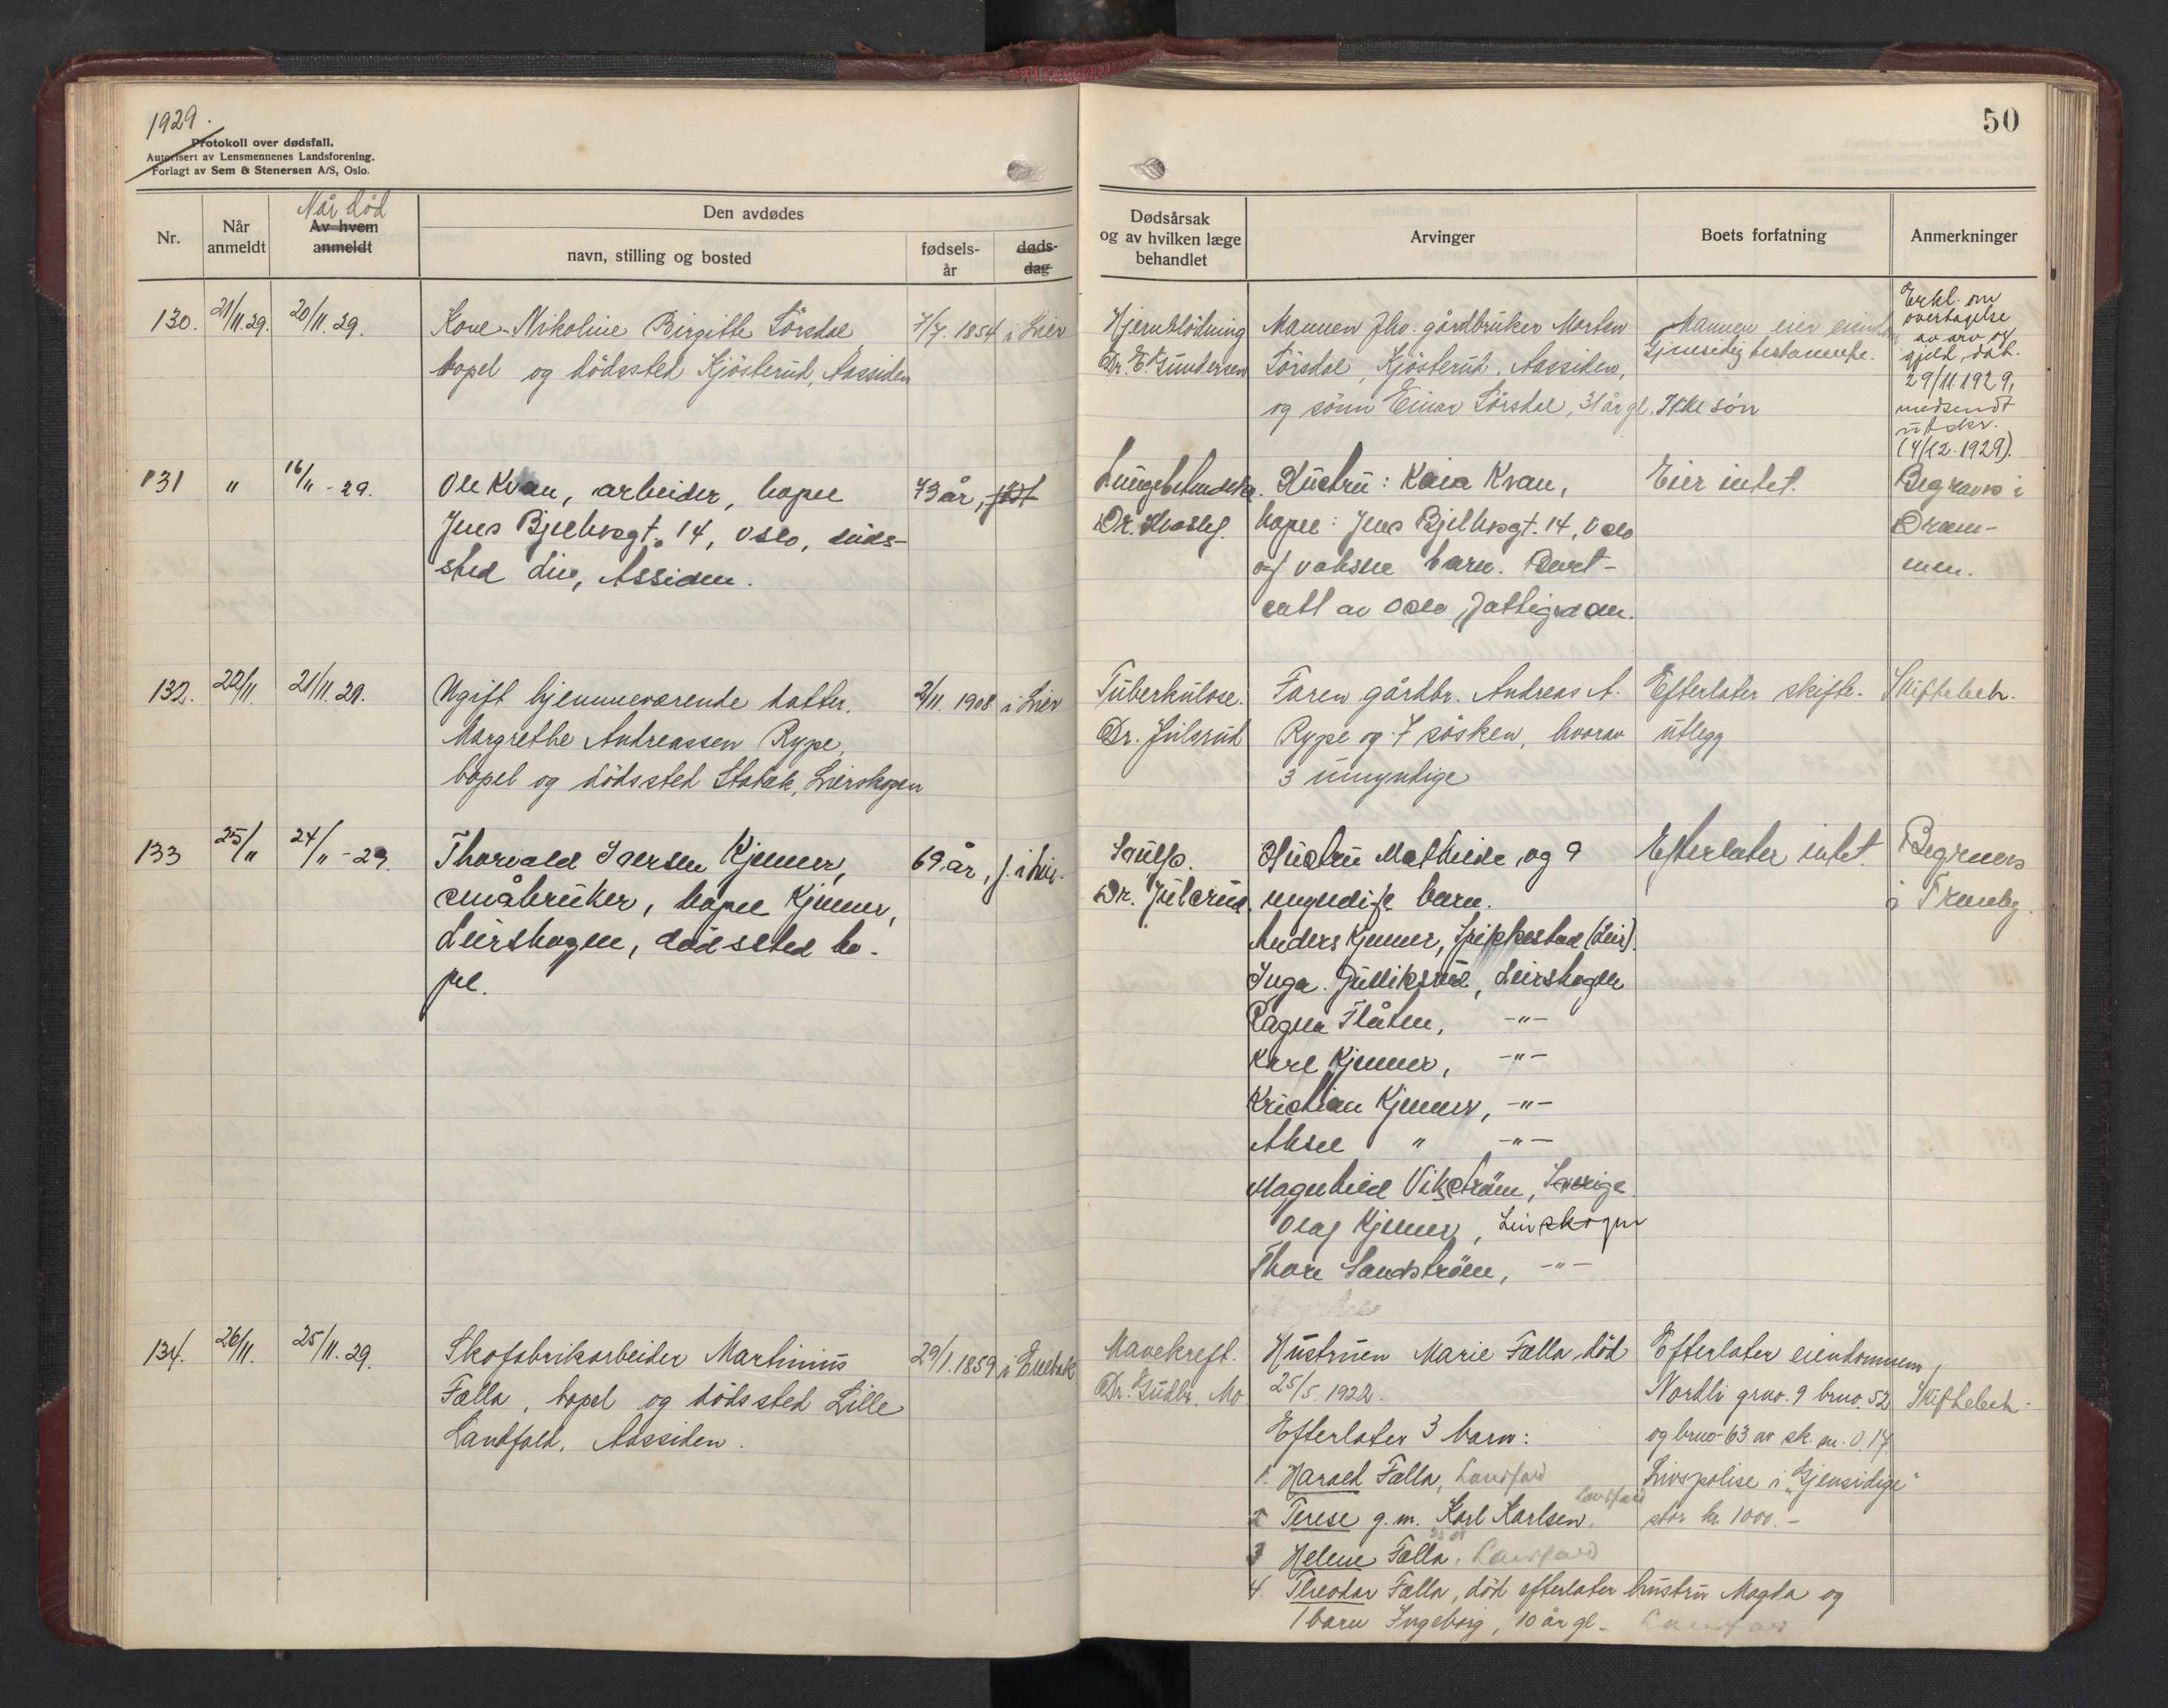 1929.
Protokoll over dødsfall.
Autorisert av Lensmennenes Landsforening.
Forlagt av Sem & Stenersen A/S, Oslo.
50
Nr.
Når anmeldt
Når död
Av hvem anmeldt
Den avdødes
navn, stilling og bosted
fødsels-år
døds-dag
Dødsårsak
og av hvilken læge
behandlet
Arvinger
Boets forfatning
Anmerkninger
130. 21/11.29. 20/11.29.
Kone Nikoline Birgitte Sörsdal,
bopel og dödssted Kjösterud, Aassiden
7/7.1854 i Lier
Hjerneblödning
Dr. E. Gundersen
Mannen Jho. gårdbruker Morten
Sörsdal, Kjösterud, Aassiden,
og sönn Einar Sörsdal, 31 år gl.
Mannen eier
Gjensidig testamente.
Ikke sön
Erkl. om
overtagelse
av arv og
gjeld, dat.
29/11.1929,
medsendt
utskr.
(4/12.1929).
131 " 16/11-29.
Ole Kvan, arbeider, bopel
Jens Bjelkesgt. 14, Oslo, döds-
sted Lie, Assiden.
73 år, født
Lungebetendelse.
Dr.
Hustru: Kaia Kvan,
bopel: Jens Bjelkesgt. 14, Oslo
og voksne barn. Bort-
satt av Oslo Fattigvesen.
Eier intet.
Begraves i
Dram-
men.
132. 22/11. 21/11.29.
Ugift hjemmeværende datter.
Margrethe Andreassen Rype,
bopel og dödssted Stabæk, Lierskogen
2/11.1908 i Lier
Tuberkulose.
Dr. Julsrud
Faren gårdbr. Andreas A.
Rype og 7 søsken, hvorav
3 umyndige
Efterlater skifte-
utlegg
Skiftebeh.
133 25/11 24/11-29.
Thorvald Iversen Kjenner,
småbruker, bopel Kjenner,
Lierskogen, dödssted bo-
pel.
69 år, f. i Lier.
Dr. Julsrud.
Hustru Mathilde, og 9
myndige barn.
Anders Kjenner, Spikkestad (Lier).
Inga Gulliksrud, Lierskogen
Ragna Flåten, -"-
Karl Kjenner, -"-
Kristian Kjenner, -"-
Aksel " -"-
Magnhild Vikström, Sverige
Olaf Kjenner, Lierskogen
Thora Sandström, -"-
Efterlater intet.
Begraves
i Tranby.
134. 26/11. 25/11.29.
Skofabrikarbeider Martinius
Falla, bopel og dödssted Lille
Landfald, Aassiden.
29/1.1859 i Enebak
Mavekreft.
Dr. Gudbr. Mo
Hustruen Marie Falla död
25/5.1922.
Efterlater 3 barn:
1. Harald Falla, Landfald
2 Terese g.m. Karl Karlsen, Landfald
3 Helene Falla, Landfald
4. Theodor Falla, död efterlater hustru Magda og
1 barn Ingeborg, 10 år gl. Landfald
Efterlater eiendommen,
Nordli grno. 9 brno. 52
og brno 63 av sk. m. 0.17.
Livspolise i "Gjensidige"
stor kr. 1000.-
Skiftebeh.